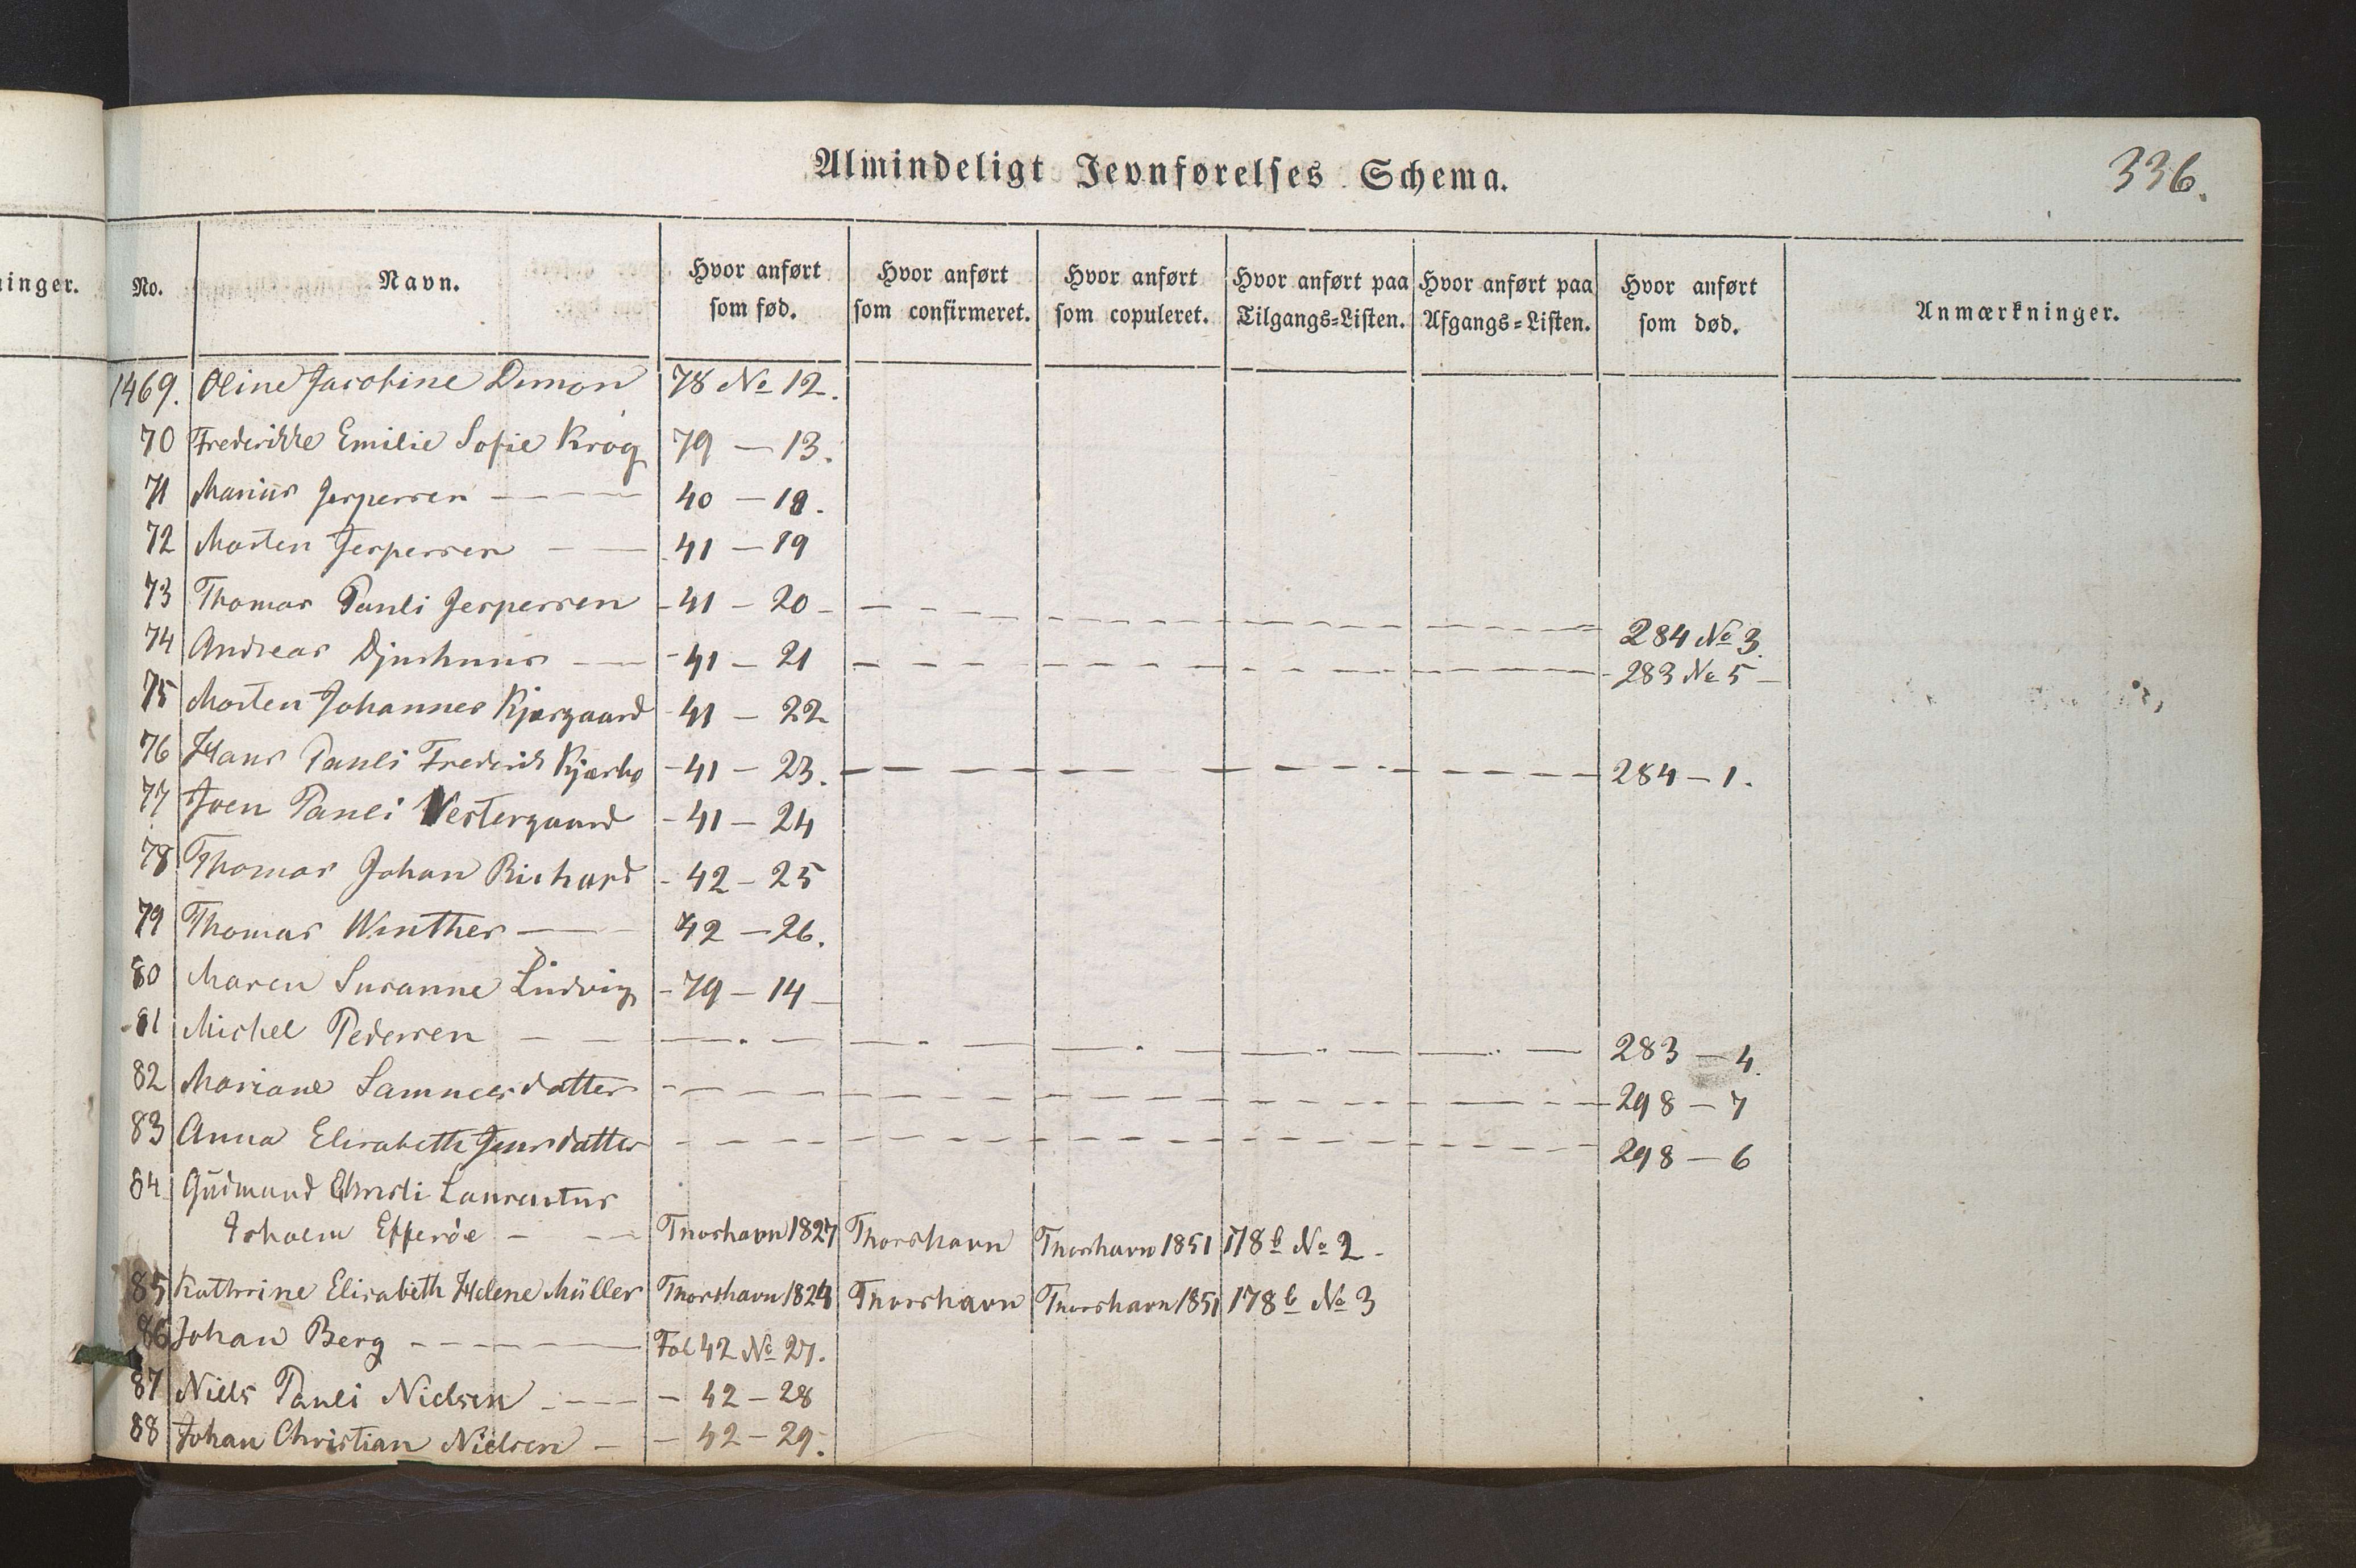 Almindeligt Jevnførelses Schema.
336.
inger.
No. Navn. Hvor anført som fød. Hvor anført som confirmeret. Hvor anført som copuleret. Hvor anført paa Tilgangs=Listen. Hvor anført paa Afgangs=Listen. Hvor anført som død. Anmærkninger.
1469. Oline Jacobine Dimon 78 No 12.
70 Frederikke Emilie Sofie Krog 79 — 13.
71 Marius Jespersen — — — 40 — 18.
72 Morten Jespersen — — 41 — 19
73 Thomas Pauli Jespersen - 41 — 20 - 284 No 3.
74 Andreas Djurhuus — - 41 — 21 - 283 No 5 -
75 Morten Johannes Kjærgaard - 41 — 22
76 Hans Pauli Frederik Kjærbo - 41 — 23. — 284 — 1.
77 Joen Pauli Vestergaard - 41 — 24
78 Thomas Johan Richard - 42 — 25
79 Thomas Winther — 42 — 26.
80 Maren Susanne Ludvig - 79 — 14 -
81 Michel Pedersen — — 283 — 4.
82 Mariane Samuelsdatter - 298 — 7
83 Anna Elisabeth Jensdatter - 298 — 6
84 Gudmund Christi Laurentus
Isholm Effersøe - — Thorshavn 1827 Thorshavn Thorshavn 1851 178 b No 2 -
85 Kathrine Elisabeth Helene Müller Thorshavn 1824 Thorshavn Thorshavn 1851 178 b No 3
86 Johan Berg - — — Fol 42 No 27.
87 Niels Pauli Nielsen - — - 42 — 28
88 Johan Christian Nielsen - - 42 — 29.